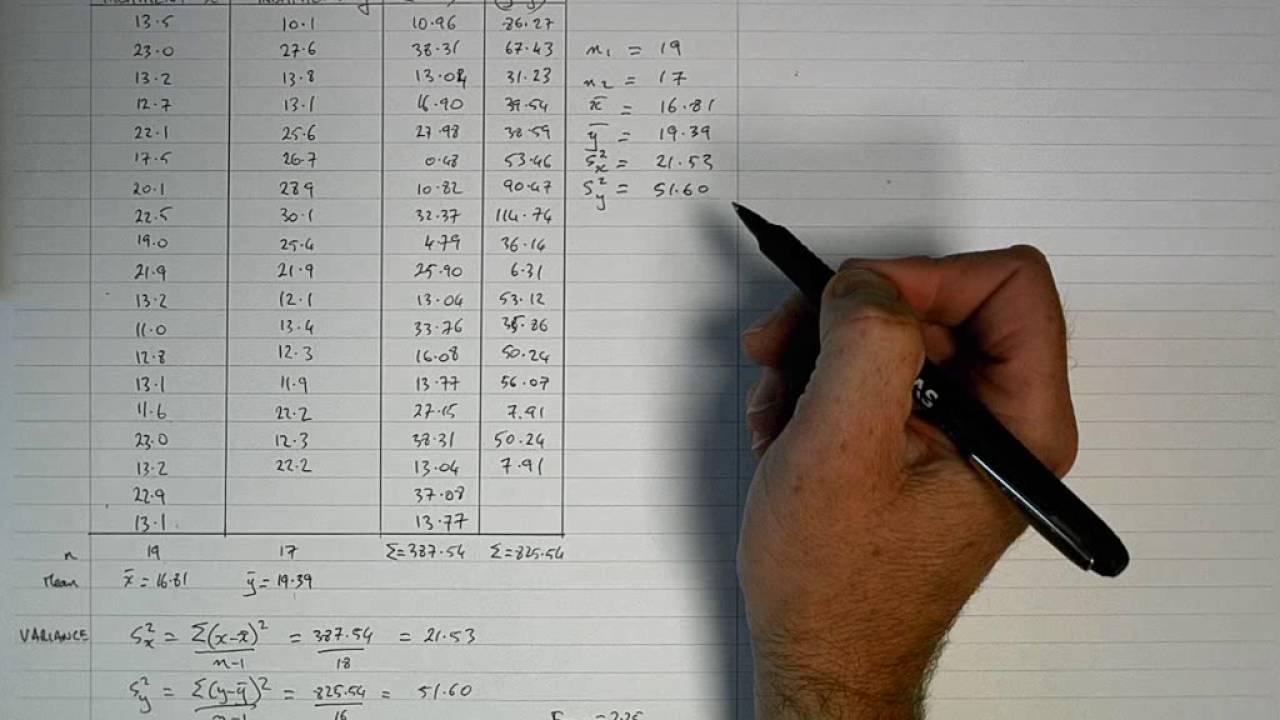 13.5 10.1 10.96 86.27
23.0 27.6 38.31 67.43 n1 = 19
13.2 13.8 13.04 31.23 n2 = 17
12.7 13.1 16.90 39.54 x̄ = 16.81
22.1 25.6 27.98 38.59 ȳ = 19.39
17.5 26.7 0.48 53.46 S²x = 21.53
20.1 28.9 10.82 90.47 S²y = 51.60
22.5 30.1 32.37 114.74
19.0 25.4 4.79 36.14
21.9 21.9 25.90 6.31
13.2 12.1 13.04 53.12
11.0 13.4 33.76 35.86
12.8 12.3 16.08 50.24
13.1 11.9 13.77 56.07
11.6 22.2 27.15 7.91
23.0 12.3 38.31 50.24
13.2 22.2 13.04 7.91
22.9 37.08
13.1 13.77
n 19 17 Σ=387.54 Σ=825.54
Mean x̄ = 16.81 ȳ = 19.39
VARIANCE S²x = Σ(x-x̄)²/n-1 = 387.54/18 = 21.53
S²y = Σ(y-ȳ)²/n-1 = 825.54/16 = 51.60